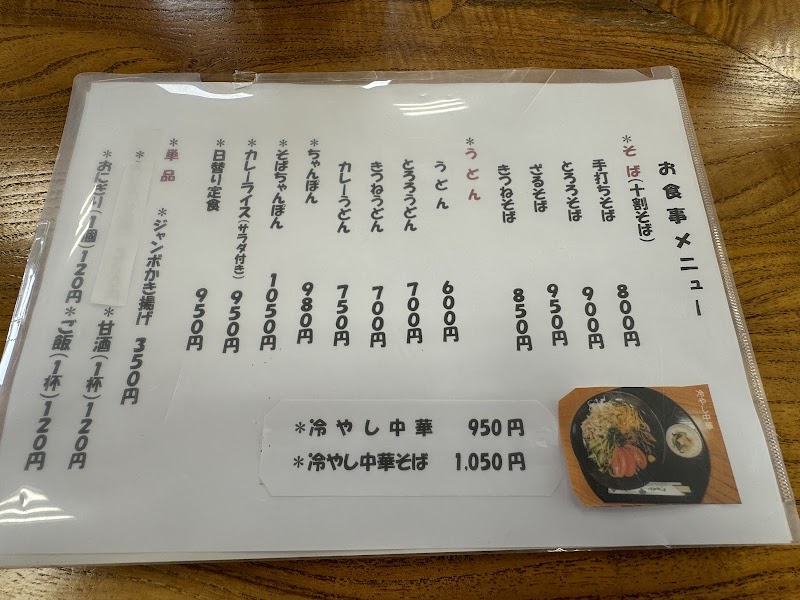 お食事メニュー
*そば(十割そば)
手打ちそば 800円
とろろそば 900円
ざるそば 950円
きつねそば 850円
*うどん
うどん 600円
とろろうどん 700円
きつねうどん 700円
カレーうどん 750円
*ちゃんぽん 980円
*そばちゃんぽん 1050円
*カレーライス(サラダ付き) 950円
*日替り定食 950円
*単品
*ジャンボかき揚げ 350円
*おにぎり(1個)120円 *甘酒(1杯)120円
*ご飯(1杯)120円
*冷やし中華 950円
*冷やし中華そば 1,050円
冷やし中華